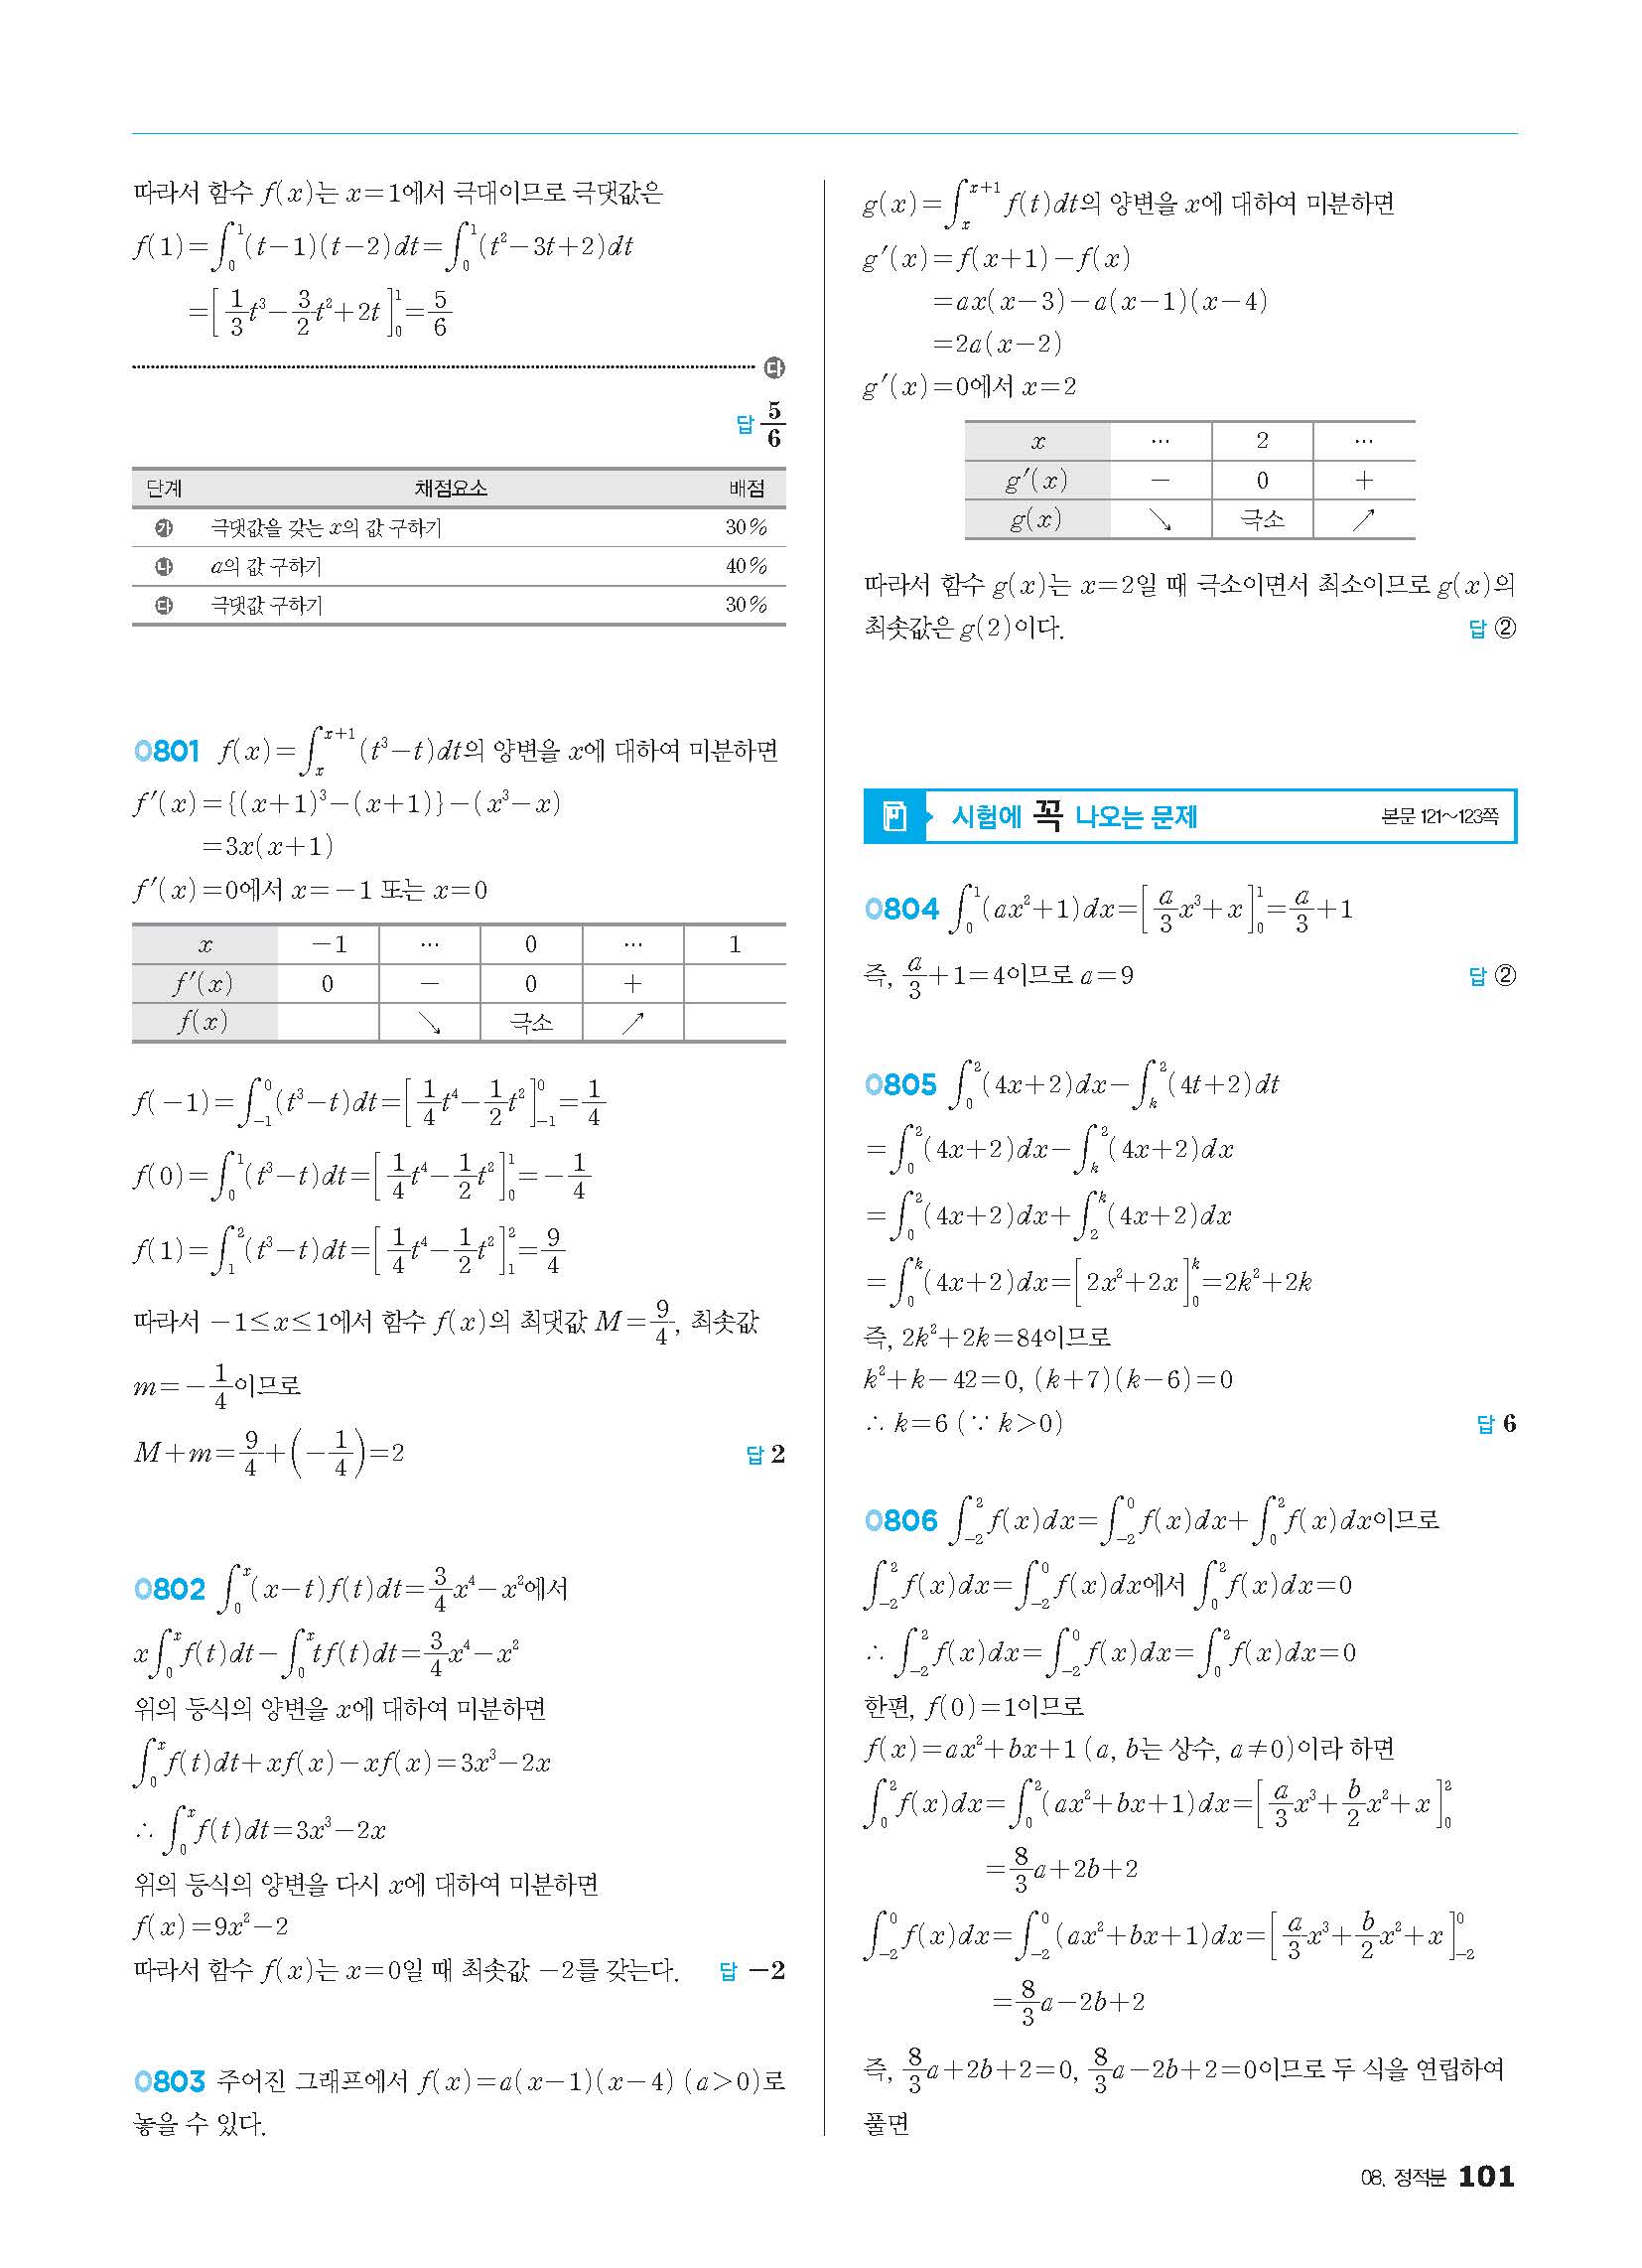 따라서 함수 f(x)는 x=1에서 극대이므로 극댓값은
f(1)=∫₀¹(t-1)(t-2)dt=∫₀¹(t²-3t+2)dt
=[1/3 t³-3/2 t²+2t]₀¹=5/6
㉰
답 5/6
단계 채점요소 배점
㉮ 극댓값을 갖는 x의 값 구하기 30%
㉯ a의 값 구하기 40%
㉰ 극댓값 구하기 30%
0801 f(x)=∫ₓˣ⁺¹(t³-t)dt의 양변을 x에 대하여 미분하면
f′(x)={(x+1)³-(x+1)}-(x³-x)
=3x(x+1)
f′(x)=0에서 x=-1 또는 x=0
x -1 … 0 … 1
f′(x) 0 - 0 +
f(x) ↘ 극소 ↗
f(-1)=∫₋₁⁰(t³-t)dt=[1/4 t⁴-1/2 t²]₋₁⁰=1/4
f(0)=∫₀¹(t³-t)dt=[1/4 t⁴-1/2 t²]₀¹=-1/4
f(1)=∫₁²(t³-t)dt=[1/4 t⁴-1/2 t²]₁²=9/4
따라서 -1≤x≤1에서 함수 f(x)의 최댓값 M=9/4, 최솟값
m=-1/4이므로
M+m=9/4+(-1/4)=2 답 2
0802 ∫₀ˣ(x-t)f(t)dt=3/4 x⁴-x²에서
x∫₀ˣf(t)dt-∫₀ˣtf(t)dt=3/4 x⁴-x²
위의 등식의 양변을 x에 대하여 미분하면
∫₀ˣf(t)dt+xf(x)-xf(x)=3x³-2x
∴ ∫₀ˣf(t)dt=3x³-2x
위의 등식의 양변을 다시 x에 대하여 미분하면
f(x)=9x²-2
따라서 함수 f(x)는 x=0일 때 최솟값 -2를 갖는다. 답 -2
0803 주어진 그래프에서 f(x)=a(x-1)(x-4) (a>0)로
놓을 수 있다.
g(x)=∫ₓˣ⁺¹f(t)dt의 양변을 x에 대하여 미분하면
g′(x)=f(x+1)-f(x)
=ax(x-3)-a(x-1)(x-4)
=2a(x-2)
g′(x)=0에서 x=2
x … 2 …
g′(x) - 0 +
g(x) ↘ 극소 ↗
따라서 함수 g(x)는 x=2일 때 극소이면서 최소이므로 g(x)의
최솟값은 g(2)이다. 답 ②
시험에 꼭 나오는 문제 본문 121~123쪽
0804 ∫₀¹(ax²+1)dx=[a/3 x³+x]₀¹=a/3+1
즉, a/3+1=4이므로 a=9 답 ②
0805 ∫₀²(4x+2)dx-∫ₖ²(4t+2)dt
=∫₀²(4x+2)dx-∫ₖ²(4x+2)dx
=∫₀²(4x+2)dx+∫₂ᵏ(4x+2)dx
=∫₀ᵏ(4x+2)dx=[2x²+2x]₀ᵏ=2k²+2k
즉, 2k²+2k=84이므로
k²+k-42=0, (k+7)(k-6)=0
∴ k=6 (∵ k>0) 답 6
0806 ∫₋₂²f(x)dx=∫₋₂⁰f(x)dx+∫₀²f(x)dx이므로
∫₋₂²f(x)dx=∫₋₂⁰f(x)dx에서 ∫₀²f(x)dx=0
∴ ∫₋₂²f(x)dx=∫₋₂⁰f(x)dx=∫₀²f(x)dx=0
한편, f(0)=1이므로
f(x)=ax²+bx+1 (a, b는 상수, a≠0)이라 하면
∫₀²f(x)dx=∫₀²(ax²+bx+1)dx=[a/3 x³+b/2 x²+x]₀²
=8/3 a+2b+2
∫₋₂⁰f(x)dx=∫₋₂⁰(ax²+bx+1)dx=[a/3 x³+b/2 x²+x]₋₂⁰
=8/3 a-2b+2
즉, 8/3 a+2b+2=0, 8/3 a-2b+2=0이므로 두 식을 연립하여
풀면
08. 정적분 101